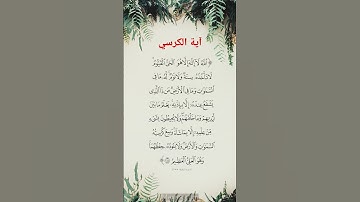 آية الكرسي
﴿ ٱللَّهُ لَآ إِلَٰهَ إِلَّا هُوَ ٱلْحَىُّ ٱلْقَيُّومُ
لَا تَأْخُذُهُۥ سِنَةٌ وَلَا نَوْمٌ لَّهُۥ مَا فِى
ٱلسَّمَٰوَٰتِ وَمَا فِى ٱلْأَرْضِ مَن ذَا ٱلَّذِى
يَشْفَعُ عِندَهُۥٓ إِلَّا بِإِذْنِهِۦ يَعْلَمُ مَا بَيْنَ
أَيْدِيهِمْ وَمَا خَلْفَهُمْ وَلَا يُحِيطُونَ بِشَىْءٍ
مِّنْ عِلْمِهِۦٓ إِلَّا بِمَا شَآءَ وَسِعَ كُرْسِيُّهُ
ٱلسَّمَٰوَٰتِ وَٱلْأَرْضَ وَلَا يَـُٔودُهُۥ حِفْظُهُمَا
وَهُوَ ٱلْعَلِىُّ ٱلْعَظِيمُ ﴾